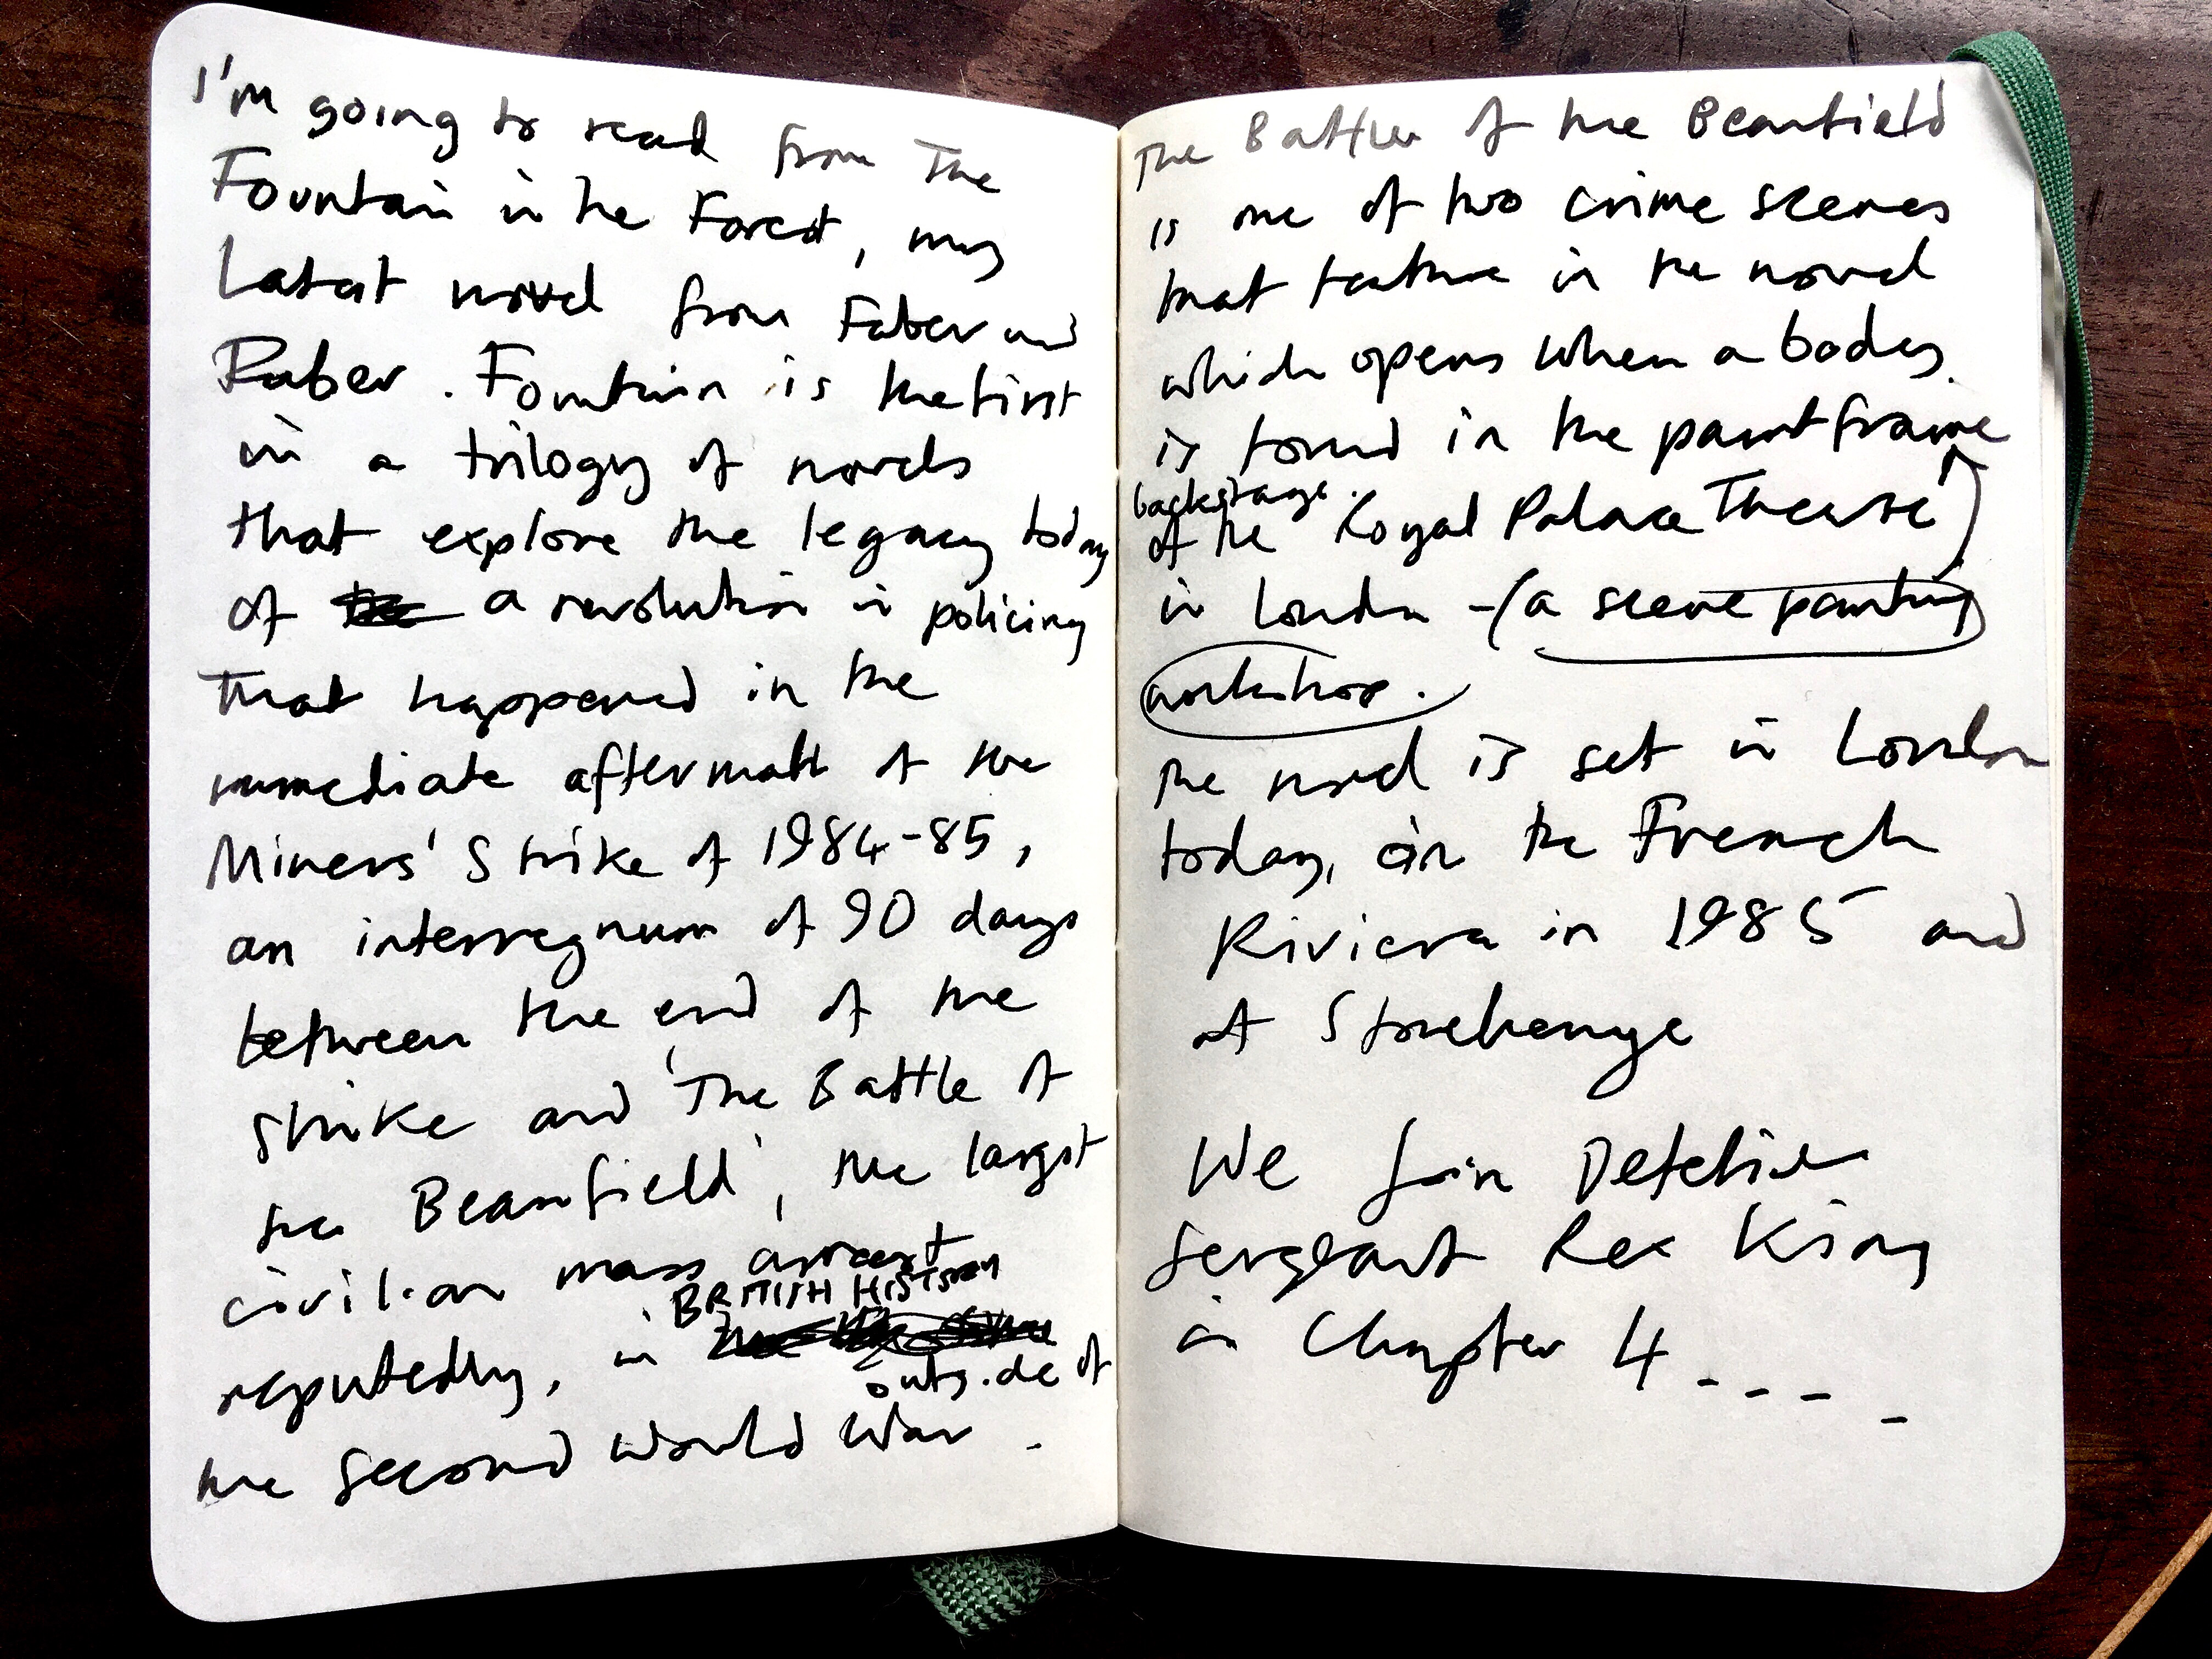 I'm going to read from The
Fountain in the Forest, my
latest novel from Faber and
Faber. Fountain is the first
in a trilogy of novels
that explore the legacy today
of the a revolution in policing
that happened in the
immediate aftermath of the
Miners' Strike of 1984-85,
an interregnum of 90 days
between the end of the
strike and 'The Battle of
the Beanfield', the largest
civilian mass arrest
BRITISH HISTORY
reputedly, in
outside of
the Second World War.
The Battle of the Beanfield
is one of two crime scenes
that feature in the novel
which opens when a body
is found in the paintframe
backstage
of the Royal Palace Theatre
in London - (a scene painting
workshop.
The novel is set in London
today, in the French
Riviera in 1985 and
at Stonehenge
We join Detective
Sergeant Rex King
in Chapter 4 - - - -